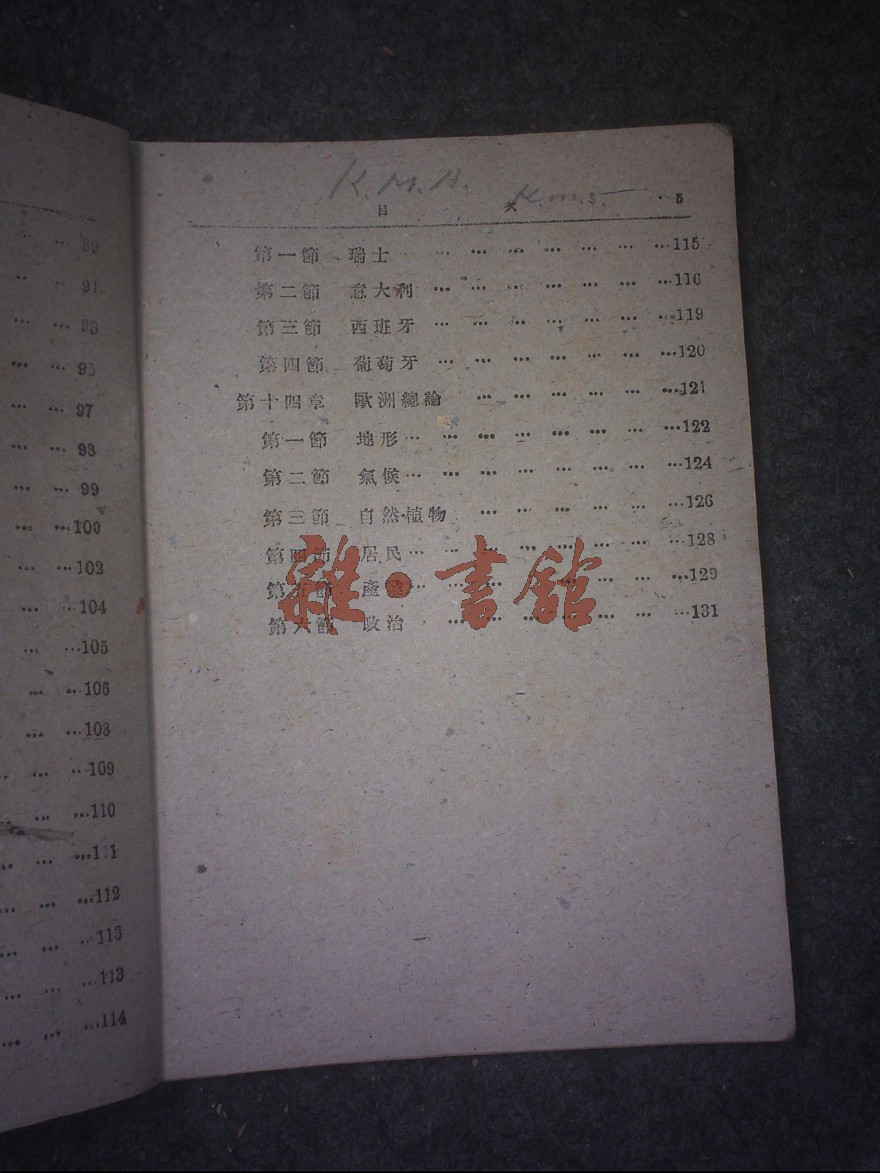 89
91
93
95
97
98
99
100
102
104
105
106
108
109
110
111
112
113
113
114
K.M.A. K.m.5.
目 次 5
第一節 瑞士 ... ... ... ... ... ... ...115
第二節 意大利 ... ... ... ... ... ... ...116
第三節 西班牙 ... ... ... ... ... ... ...119
第四節 葡萄牙 ... ... ... ... ... ... ...120
第十四章 歐洲總論 ... ... ... ... ... ...121
第一節 地形 ... ... ... ... ... ... ... ...122
第二節 氣候 ... ... ... ... ... ... ... ...124
第三節 自然植物 ... ... ... ... ... ...126
第四節 居民 ... ... ... ... ... ... ... ...128
第五節 產 ... ... ... ... ... ... ... ...129
第六節 政治 ... ... ... ... ... ... ...131
雜·書館